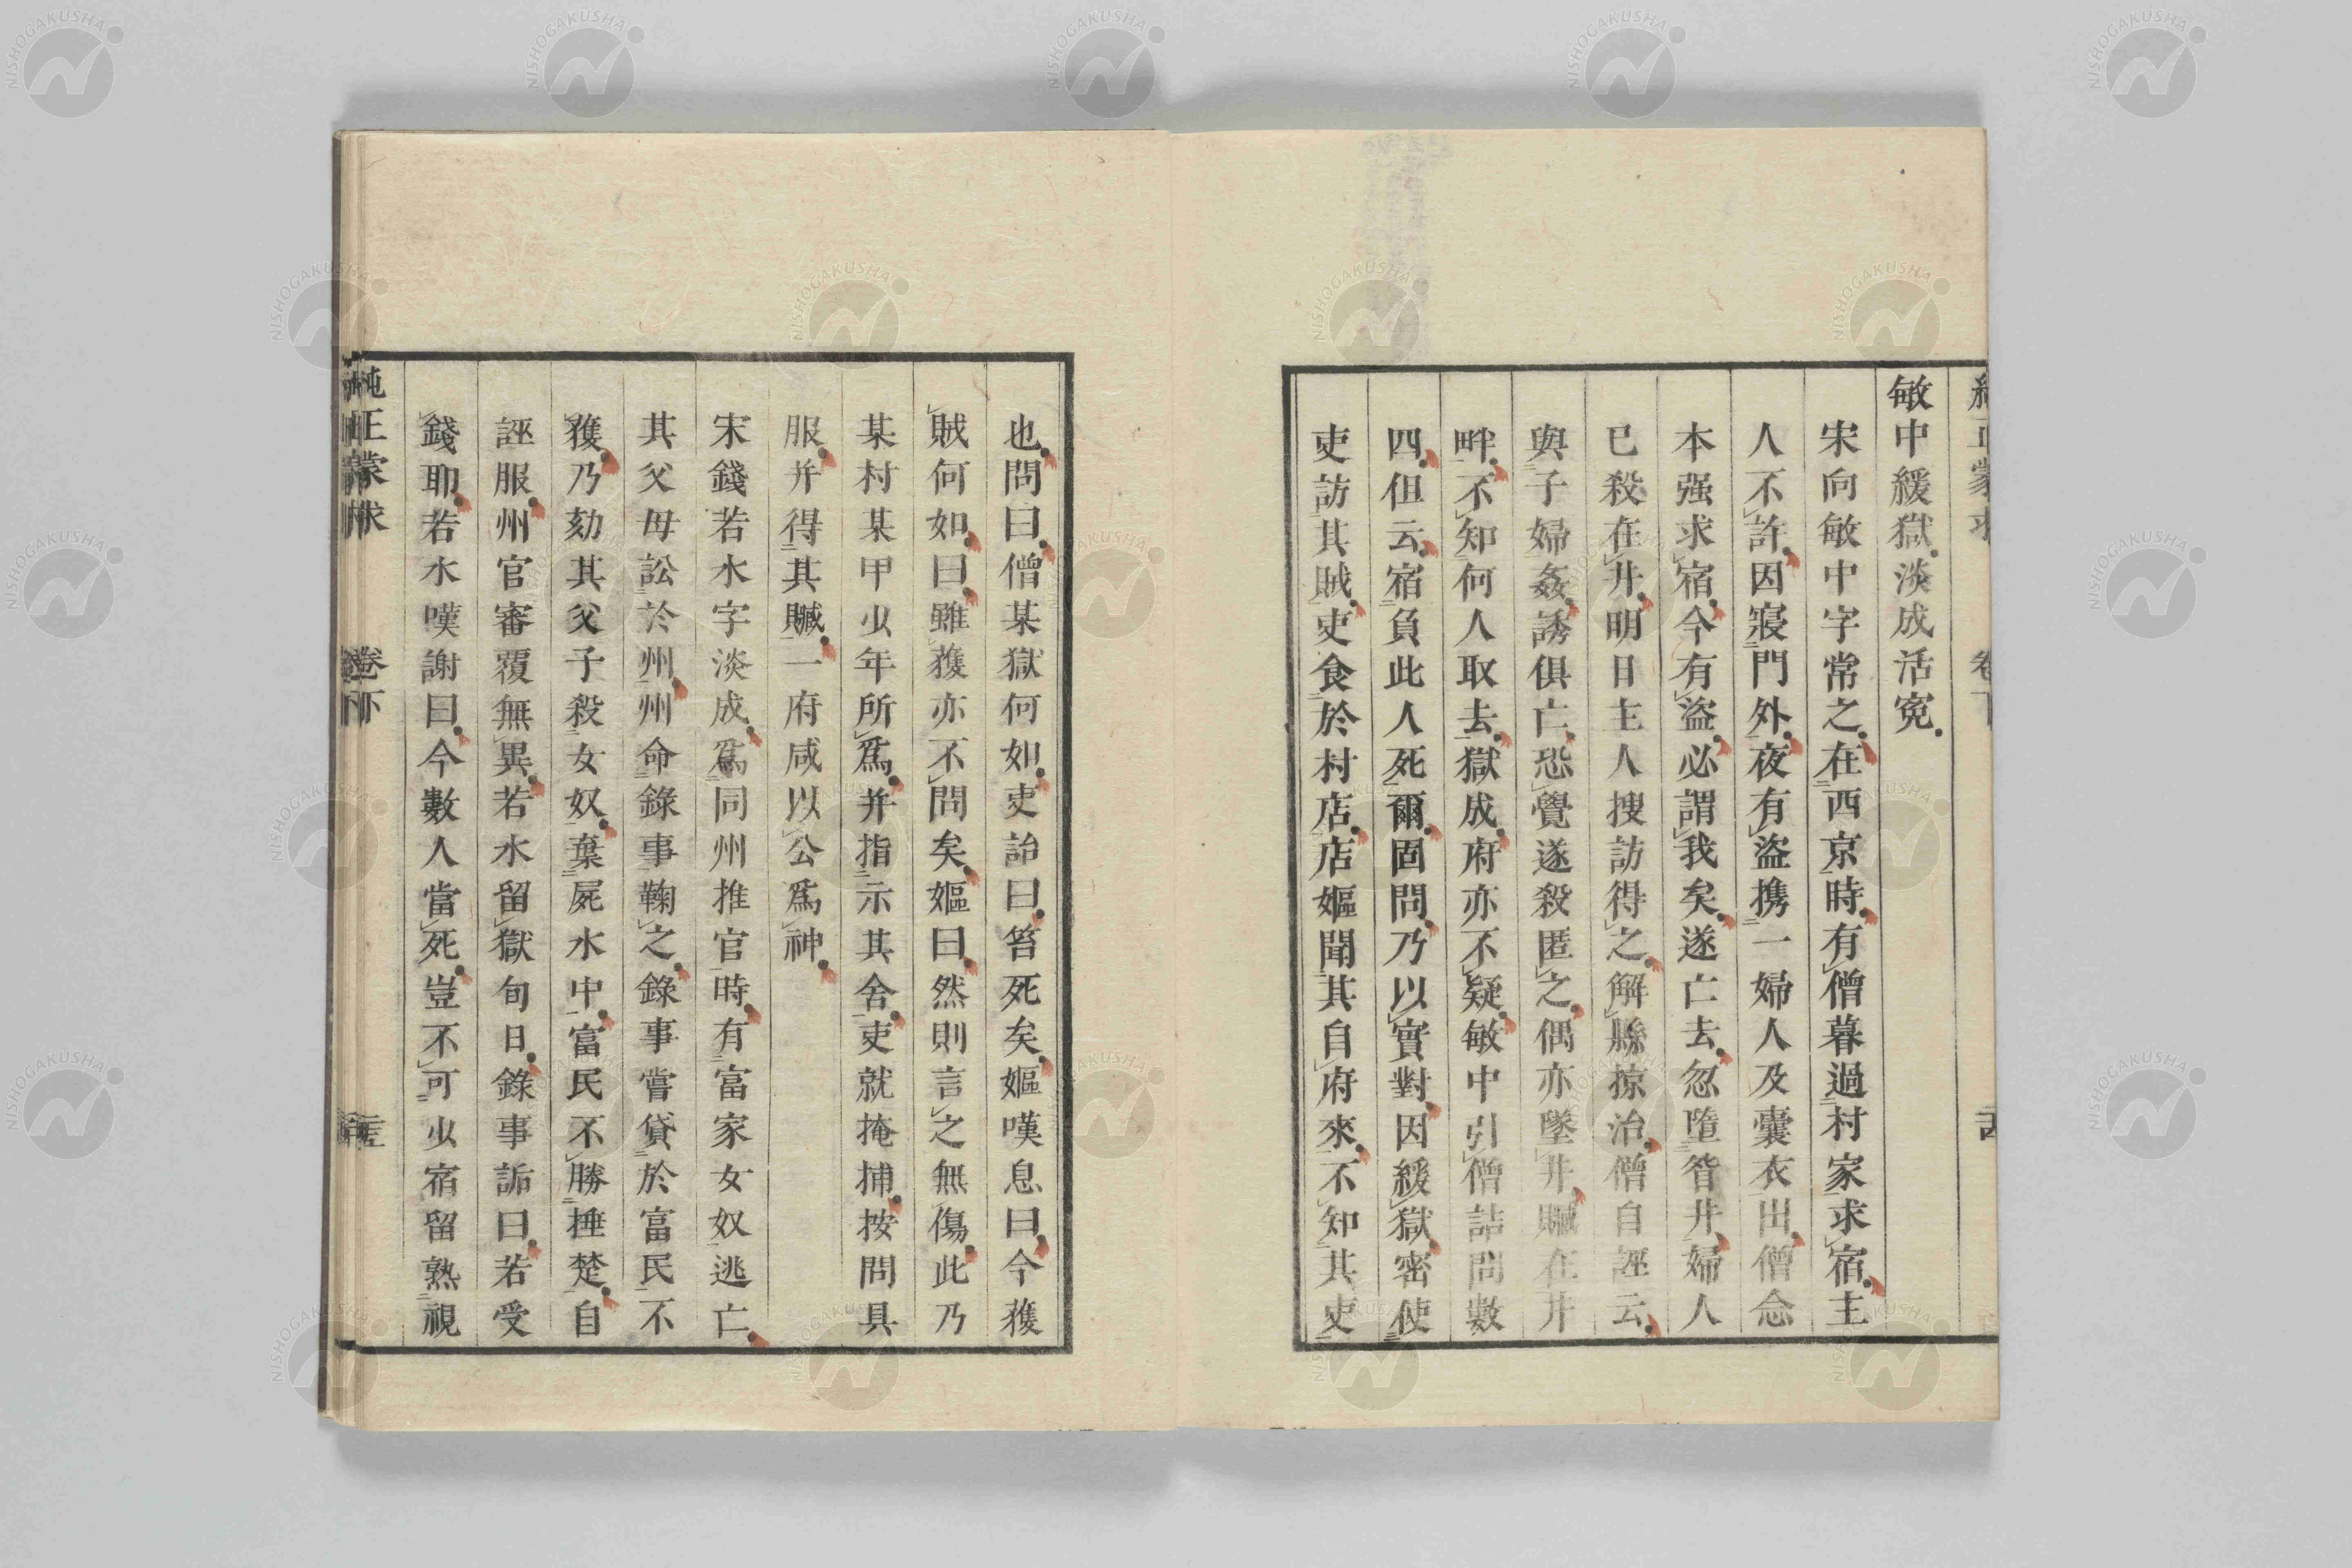 敏中緩獄淡成活寃
宋向敏中字常之在西京時有僧暮過村家求宿主
人不許因寢門外夜有盜携一婦人及囊衣出僧念
本强求宿今有盜必謂我矣遂亡去忽墮眢井婦人
已殺在井明日主人搜訪得之解縣掠治僧自誣云
與子婦姦誘俱亡恐覺遂殺匿之偶亦墜井贓在井
畔不知何人取去獄成府亦不疑敏中引僧詰問數
四但云宿負此人死爾固問乃以實對因緩獄密使
吏訪其賊吏食於村店店嫗聞其自府來不知其吏
也問曰僧某獄何如吏詒曰笞死矣嫗嘆息曰今獲
賊何如曰雖獲亦不問矣嫗曰然則言之無傷此乃
某村某甲少年所爲并指示其舍吏就掩捕按問具
服并得其贓一府咸以公爲神
宋錢若水字淡成爲同州推官時有富家女奴逃亡
其父母訟於州州命錄事鞠之錄事嘗貸於富民不
獲乃劾其父子殺女奴棄屍水中富民不勝捶楚自
誣服州官審覆無異若水留獄旬日錄事詬曰若受
錢耶若水嘆謝曰今數人當死豈不可少宿留熟視
純正蒙求 卷下
NISHOGAKUSHA